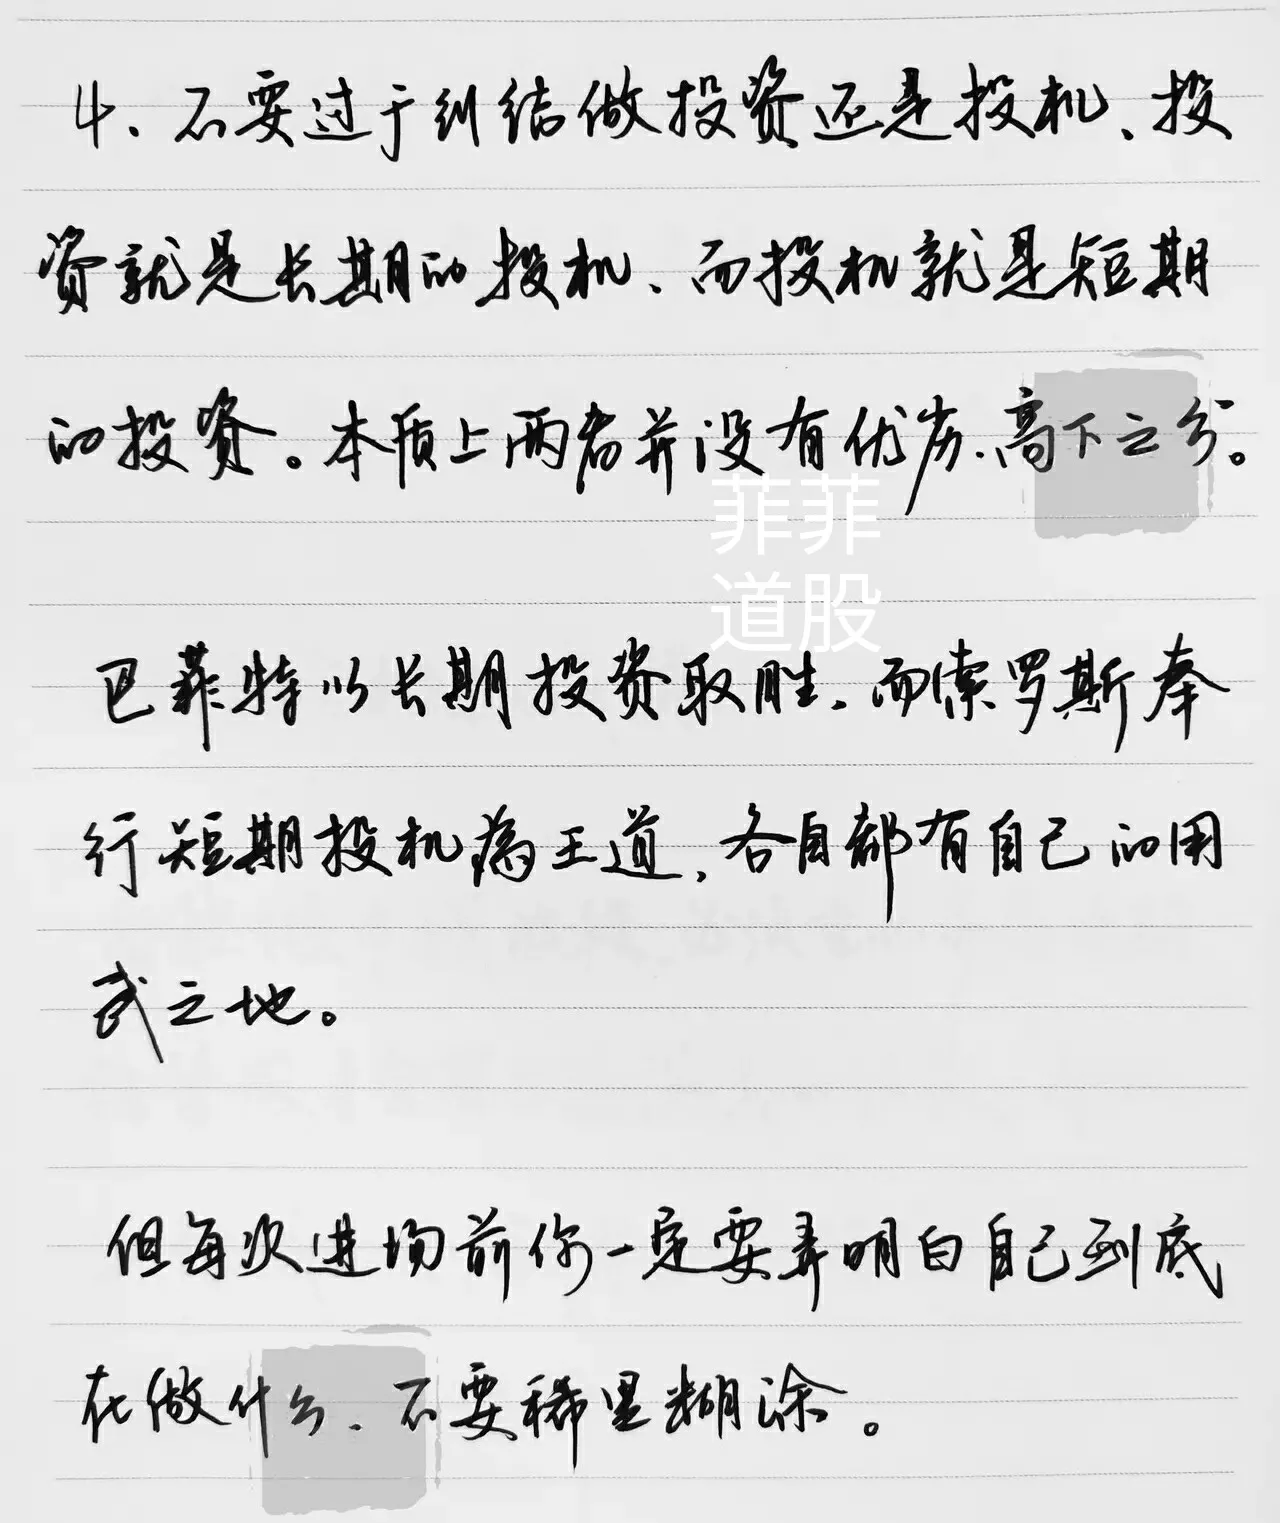 4、不要过于纠结做投资还是投机、投
资就是长期的投机、而投机就是短期
的投资。本质上两者并没有优劣、高下之分。
菲菲
道股
巴菲特以长期投资取胜,而索罗斯奉
行短期投机為王道,各自都有自己的用
武之地。
但每次进场前你一定要弄明白自己到底
在做什么、不要稀里糊涂。